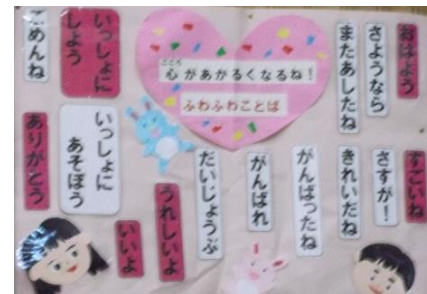 心があかるくなるね！
こころ
ふわふわことば
おはよう
さようなら
またあしたね
すごいね
さすが！
きれいだね
がんばったね
がんばれ
だいじょうぶ
うれしいよ
いいよ
いっしょに
しよう
ごめんね
いっしょに
あそぼう
ありがとう